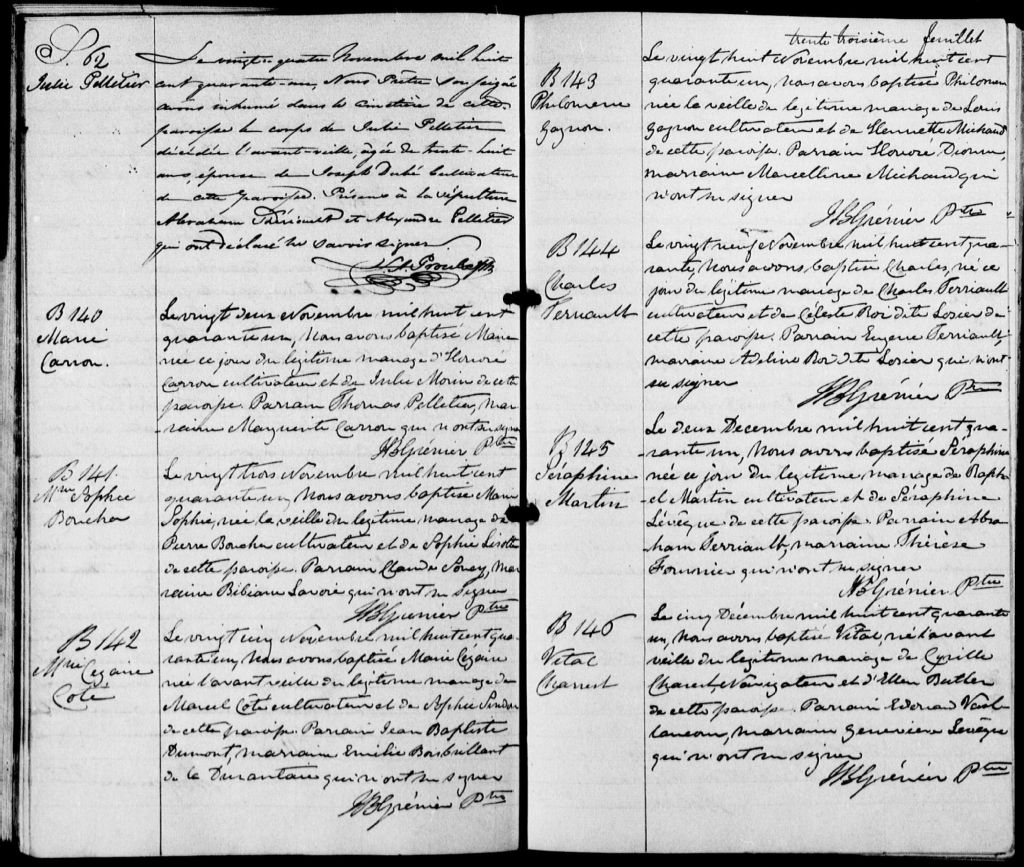 S. 62
Julie Pelletier
Le vingt-quatre Novembre mil huit
cent quarante-un, Nous Prêtre soussigné
avons inhumé dans le cimetière de cette
paroisse le corps de Julie Pelletier
décédée l'avant-veille, âgée de trente-huit
ans, épouse de Joseph Dubé Cultivateur
de cette paroisse. Présens à la sépulture
Abraham Thériault et Alexandre Pelletier
qui ont déclaré ne savoir signer.
B 140
Marie
Carron.
Le vingt deux Novembre mil huit cent
quarante un, Nous avons baptisé Marie
née ce jour du légitime mariage d'Honoré
Carron cultivateur et de Julie Morin de cette
paroisse. Parrain Thomas Pelletier, mar-
raine Marguerite Carron qui n'ont su signer
JBGrénier Ptre
B 141.
Mie Sophie
Boucher
Le vingt trois Novembre mil huit cent
quarante un, Nous avons baptisé Marie
Sophie, née la veille du légitime mariage de
Pierre Boucher cultivateur et de Sophie Lisotte
de cette paroisse. Parrain Claude Soucy, mar
raine Bibiane Lavoie qui n'ont su signer
JBGrénier Ptre
B 142
Mie Cezaire
Coté
Le vingt cinq Novembre mil huit cent qua-
rante un, Nous avons baptisé Marie Cezaire
née l'avant veille du légitime mariage de
Marcel Côté cultivateur et de Sophie
de cette paroisse. Parrain Jean Baptiste
Dumont, marraine Emilie Boisbrillant
de la Durantaie qui n'ont su signer
JBGrénier Ptre
trente troisième feuillet
B 143
Philomene
Gagnon.
Le vingt huit Novembre mil huit cent
quarante un, Nous avons baptisé Philomene
née la veille du légitime mariage de Louis
Gagnon cultivateur et de Henriette Michaud
de cette paroisse. Parrain Honoré Dionne,
marraine Marcelline Michaud qui
n'ont su signer
JBGrénier Ptre
B 144
Charles
Terriault
Le vingt neuf Novembre mil huit cent qua-
rante, Nous avons baptisé Charles, né ce
jour du légitime mariage de Charles Terriault
cultivateur et de Céleste Roi dit Losier de
cette paroisse. Parrain Eugene Terriault,
maraine Adeline Roi dit Losier qui n'ont
su signer
JBGrénier Ptre
B 145
Séraphine
Martin
Le deux Decembre mil huit cent qua-
rante un, Nous avons baptisé Séraphine
née ce jour du légitime mariage de Rapha-
el Martin cultivateur et de Séraphine
Lévêque de cette paroisse. Parrain Abra
ham Terriault, marraine Thérèse
Fournier qui n'ont su signer
JBGrénier Ptre
B 146
Vital
Charest
Le cinq Décembre mil huit cent quarante
un, Nous avons baptisé Vital né l'avant
veille du légitime mariage de Cyrille
Charest, Navigateur et d'Ellen Butler
de cette paroisse. Parrain Edouard Vail-
lancour, marraine Genevieve Levêque
qui n'ont su signer
JBGrénier Ptre